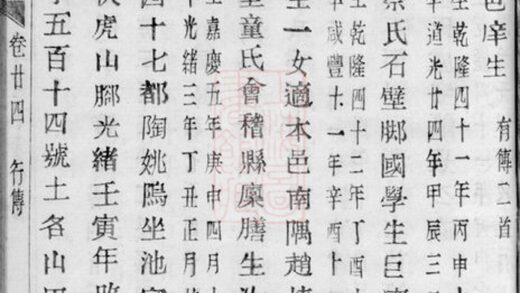 邑庠生 有傳二首
生乾隆四十一年丙申十
卒道光廿四年甲辰三
蔡氏石壁腳國學生巨
生乾隆四十二年丁酉
卒咸豐十一年辛酉十
生一女適本邑南隅趙
童氏會稽縣廩膳生
生嘉慶五年庚申四月
卒光緒三年丁丑正月
四十七都陶姚隖坐池
虎山腳光緒壬寅年
五百十四號土各山
卷廿四 行傳